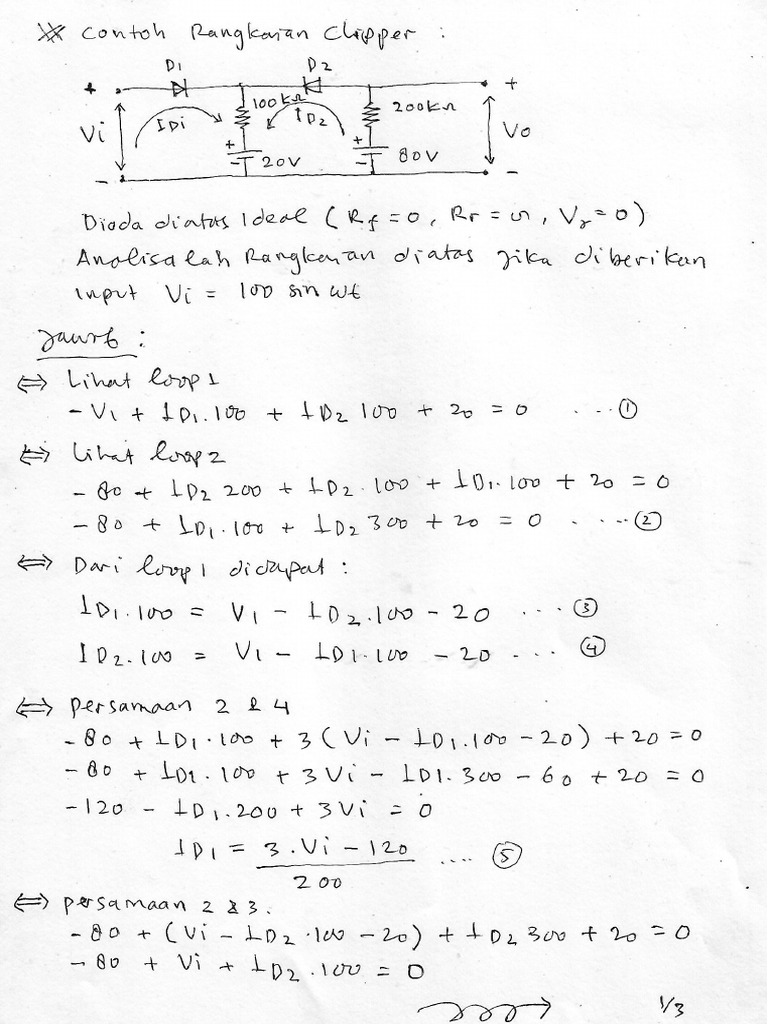 ** Contoh Rangkaian Clipper :
D1 D2
+ +
100kΩ 200kΩ
Vi IDi ID2 Vo
+ +
20V 80V
- -
- -
Dioda diatas Ideal (Rf = 0, Rr = ∞, Vγ = 0)
Analisalah Rangkaian diatas jika diberikan
input Vi = 100 sin wt
Jawab :
⇔ Lihat loop 1
- Vi + ID1.100 + ID2 100 + 20 = 0 .... ①
⇔ Lihat loop 2
- 80 + ID2 200 + ID2.100 + ID1.100 + 20 = 0
- 80 + ID1.100 + ID2 300 + 20 = 0 ..... ②
⇔ Dari loop 1 didapat :
ID1.100 = Vi - ID2.100 - 20 .... ③
ID2.100 = Vi - ID1.100 - 20 .... ④
⇔ persamaan 2 & 4
- 80 + ID1.100 + 3 (Vi - ID1.100 - 20) + 20 = 0
- 80 + ID1.100 + 3Vi - ID1.300 - 60 + 20 = 0
- 120 - ID1.200 + 3Vi = 0
ID1 = 3.Vi - 120 .... ⑤
200
⇔ persamaan 2 & 3.
- 80 + (Vi - ID2.100 - 20) + ID2 300 + 20 = 0
- 80 + Vi + ID2.100 = 0
1/3